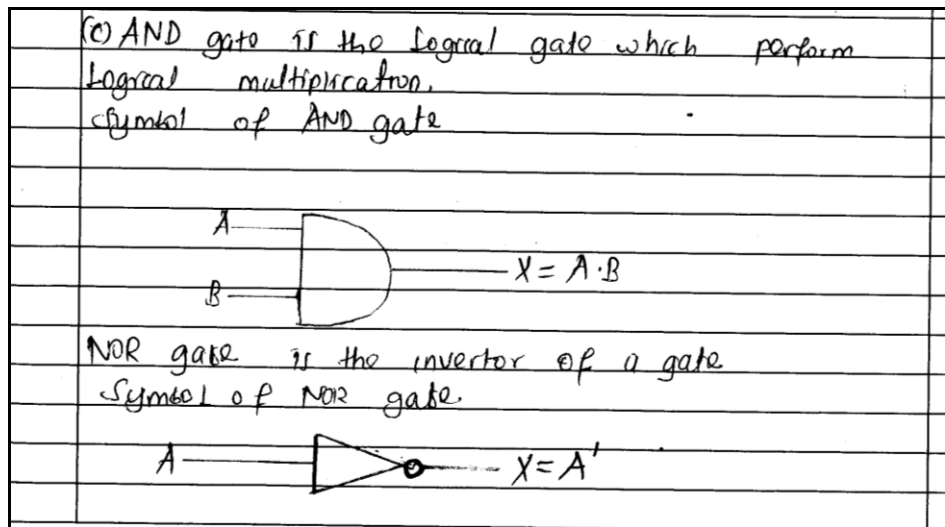 (c) AND gate is the Logical gate which perform
Logical multiplication.
Symbol of AND gate
A
X = A·B
B
NOR gate is the invertor of a gate
Symbol of NOR gate.
A X = A'